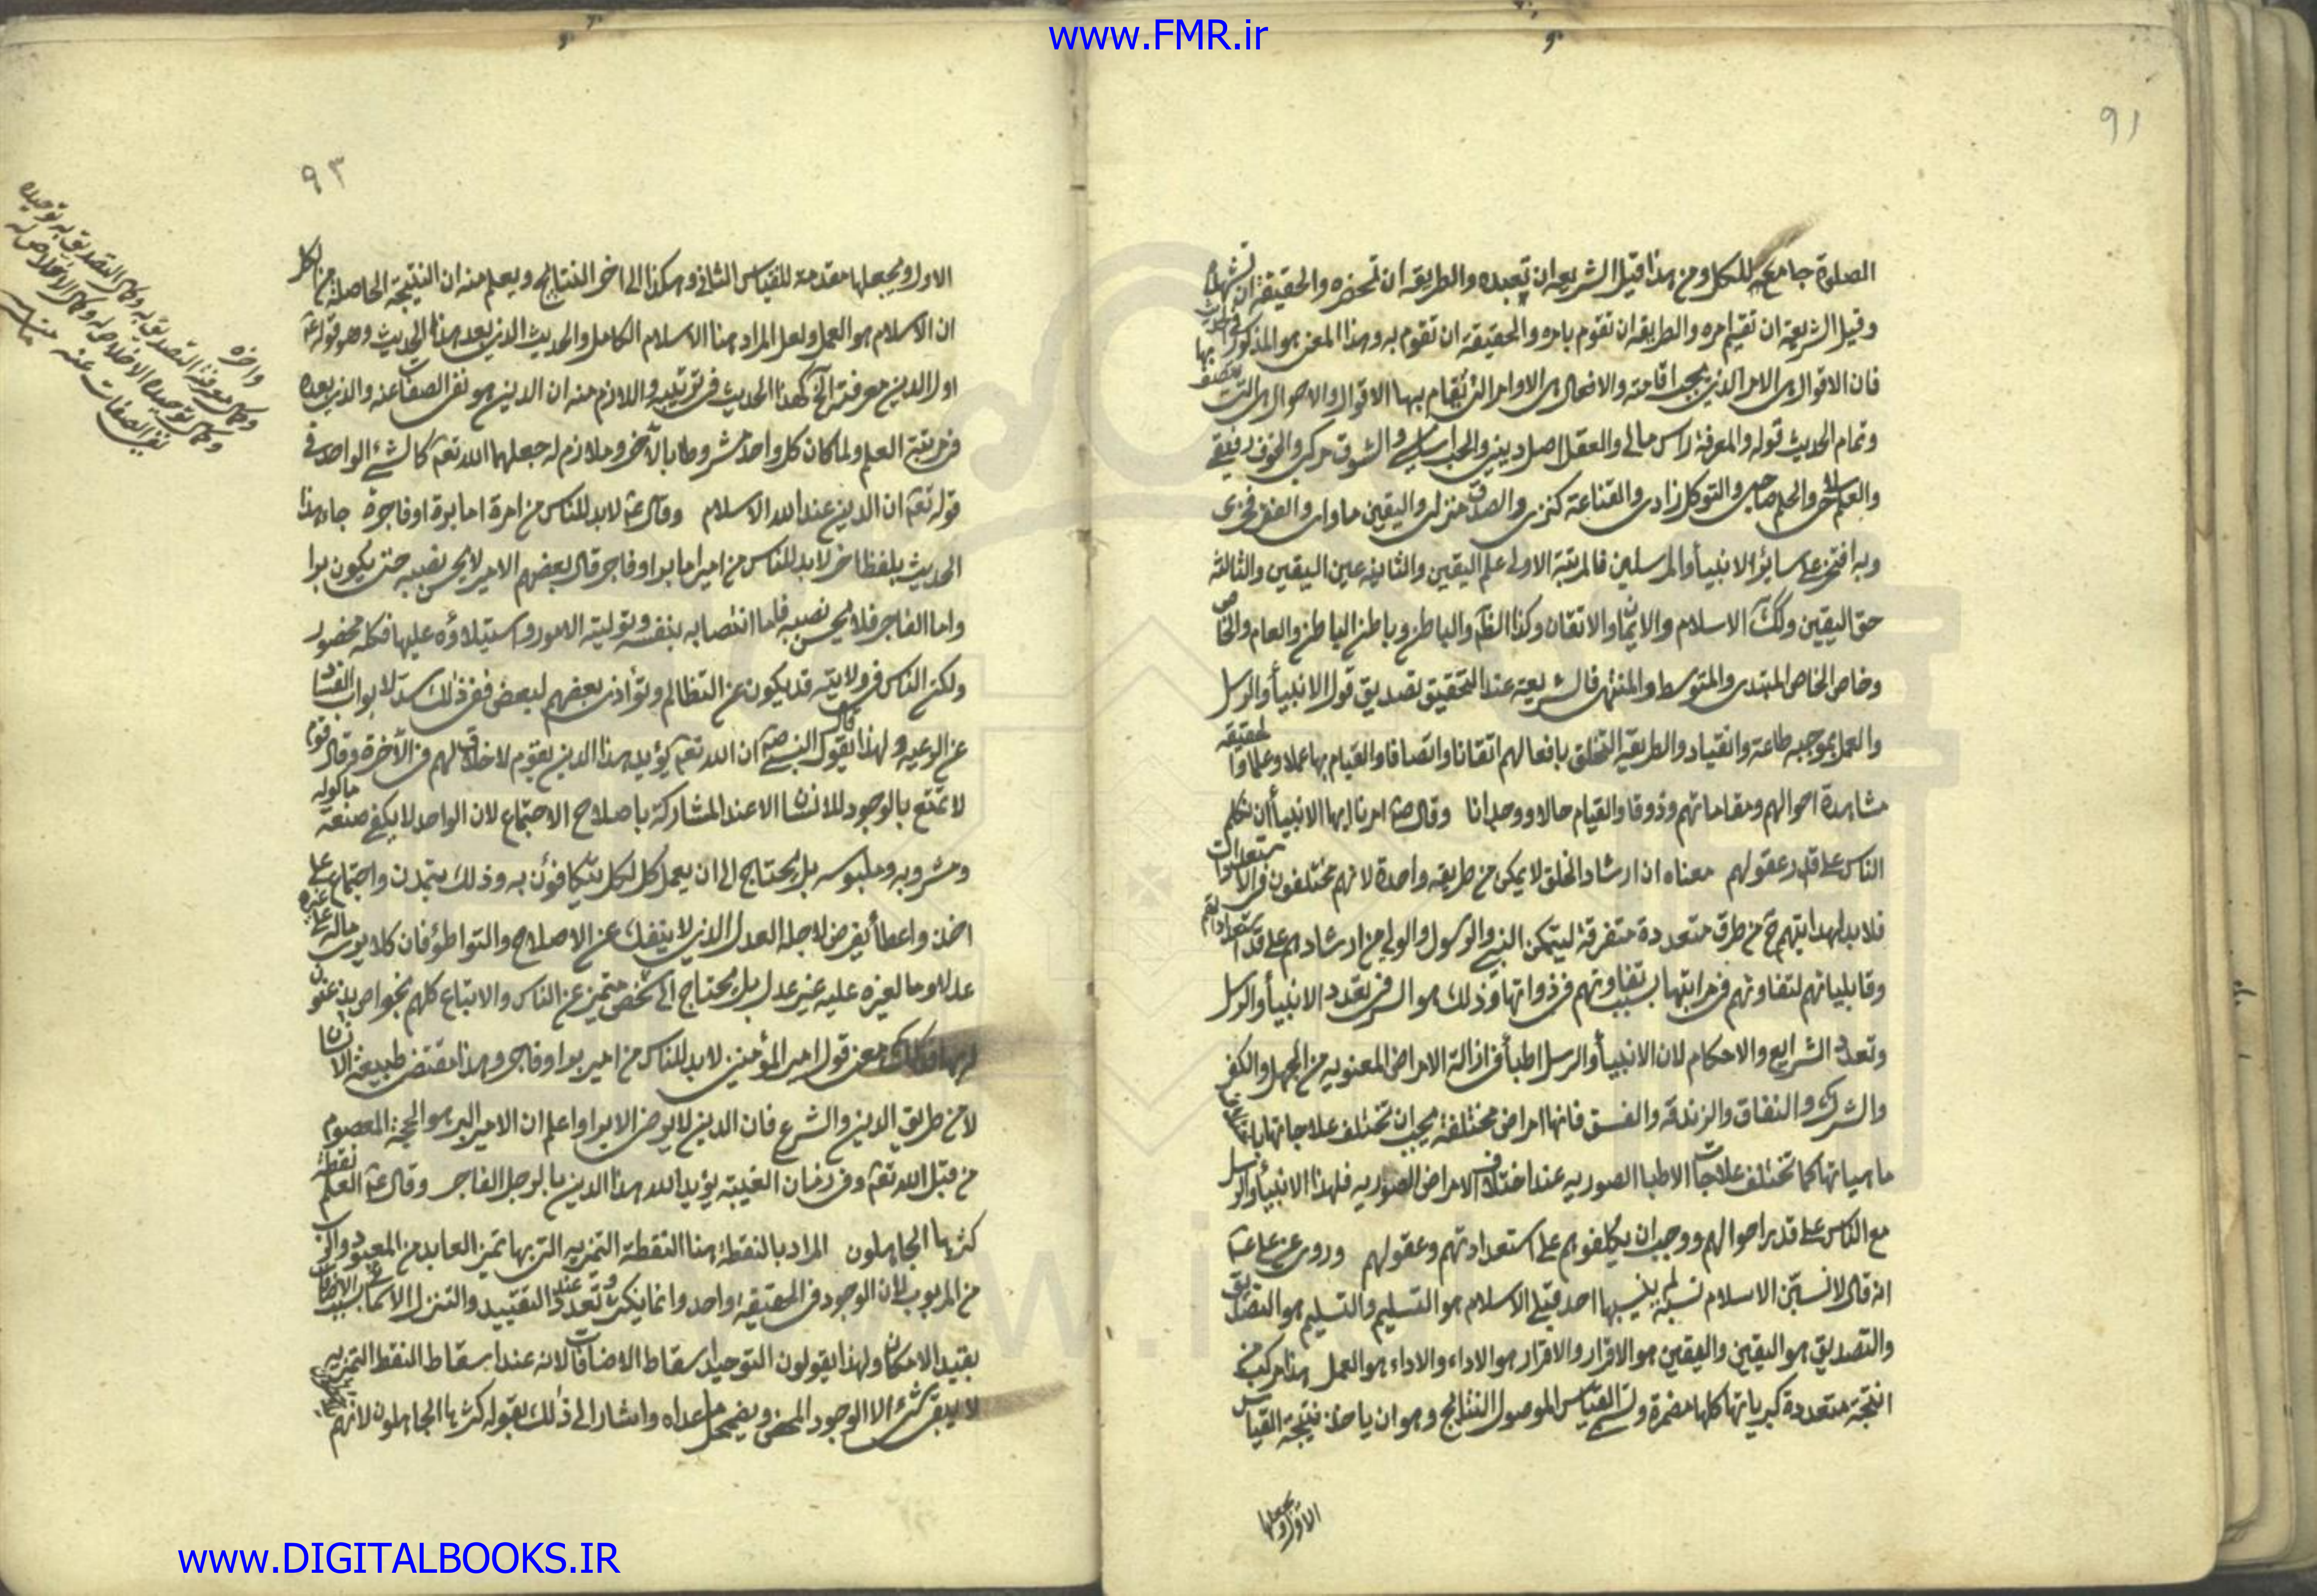 www.FMR.ir
٩١
الصلوة جامعه للكل ومن هذا قيل الشريعه ان تعبده والطريقه ان تحضره والحقيقة ان تشهده
وقيل الشريعة ان تقيم امره والطريقه ان تقوم بامره والحقيقة ان تقوم به وهذا المعنى هو المذكور في الحديث
فان الاقوال هى الامر الذى يجب اقامته والافعال هى الاوامر التى تقام بها الاقوال والاحوال هى التى يتصف بها
وتمام الحديث قوله والمعرفة راس مالى والعقل اصل دينى والحب اساسى والشوق مركبى والخوف رفيقى
والعلم سلاحى والحلم صاحبى والتوكل زادى والقناعة كنزى والصدق منزلى واليقين ماواى والفقر فخرى
وبه افتخر على سائر الانبيأ والمرسلين فالمرتبة الاولى علم اليقين والثانيه عين اليقين والثالثة
حق اليقين وكك الاسلام والايمان والاتقان وكذا الظاهر والباطن وباطن الباطن والعام والخاص
وخاص الخاص المبتدى والمتوسط والمنتهى فالشريعة عند التحقيق تصديق قول الانبيأ والرسل
والعمل بموجبه طاعة وانقياد والطريقه التخلق بافعالهم اتقانا واتصافا والقيام بها عملا وعلما والحقيقه
مشاهدة احوالهم ومقاماتهم وذوقا والقيام حالا ووجدانا وقال ص امرنا ايها الانبيأ ان نكلم
الناس على قدر عقولهم معناه ان ارشاد الخلق لا يمكن من طريقه واحدة لانهم مختلفون فى الاستعدادات
فلابد لهدايتهم ح من طرق متعددة متفرقة ليتمكن النبى والرسول والولى من ارشادهم على قدر استعداداتهم
وقابلياتهم لتفاوتهم فى مراتبها بسبب تفاوتهم فى ذواتها وذلك هو السر فى تعدد الانبيأ والرسل
وتعدد الشرايع والاحكام لان الانبيأ والرسل اطبأ فى ازالة الامراض المعنويه من الجهل والكفر
والشرك والنفاق والزندقة والفسق فانها امراض مختلفة يجب ان تختلف علاجاتها
ماهياتها كما تختلف علاجات الاطبا الصوريه عند اختلاف الامراض الصوريه فلهذا الانبيأ والرسل
مع الناس على قدر احوالهم ووجب ان يكلفوهم على استعداداتهم وعقولهم وروى عن على ع
انه قال لانسبن الاسلام نسبة لم ينسبها احد قبلى الاسلام هو التسليم والتسليم هو التصديق
والتصديق هو اليقين واليقين هو الاقرار والاقرار هو الاداء والاداء هو العمل هذا مركب من
انتجة متعددة كبرياتها كلها مضمرة وليسمى القياس الموصول النتائج وهو ان ياخذ نتيجة القياس
الاول ويجعلها
٩٣
الاول ويجعلها مقدمة للقياس الثانى وهكذا الى اخر النتائج ويعلم منه ان النتيجة الحاصلة من الكل
ان الاسلام هو العمل ولعل المراد هنا الاسلام الكامل والحديث الذى بعد هذا الحديث وهو قوله ع
اول الدين معرفته الخ كهذا الحديث فى ترتيبه واللازم منه ان الدين هو نفى الصفات عنه والذى بعده
العلم ولما كان كل واحد مشروطا بالآخر وملازم له جعلهما الله تعه كالشئ الواحد فى
قوله تعه ان الدين عند الله الاسلام وقال ع لابد للناس من امرة اما برة او فاجرة جاء هذا
الحديث بلفظ اخر لابد للناس من امير اما برا وفاجر قال بعضهم الامير لا يحسن نصبه حتى يكون برا
واما الفاجر فلا يحسن نصبه فاما انتصابه بنفسه وتوليته الامور واستيلاؤه عليها فكله محضور
ولكن الناس فى ولايته قد يكون عن التظالم وتوأذى بعضهم لبعض ففى ذلك سد لابواب الفساد
عن الرعيه ولهذا قال النبى ص ان الله تعه يؤيد هذا الدين بقوم لا خلاق لهم فى الآخرة وقال
لا تمتع بالوجود للانسان الا عند المشاركة باصلاح الاجتماع لان الواحد لا يكفى صنعة ماكوله
ومشروبه وملبوسه بل يحتاج الى ان يعمل كل لكل يتكافؤن به وذلك بتمدن واجتماع على
اخذ واعطأ يفرض لاجله العدل الذى لا ينفك عن الاصلاح والتواطؤ فان كلا يرى ماله على غيره
عدلا وما لغيره عليه غير عدل بل يحتاج الى شخص متميز عن الناس والاتباع كلهم بخواص يذعنون
معنى قول امير المؤمنين لابد للناس من امير برا وفاجر وهذا مقتضى طبيعة الانسان
لا من طريق الدين والشرع فان الدين لا يرض الا برا واعلم ان الامير البر هو الحجة المعصوم
من قبل الله تعه وفى زمان الغيبة يؤيد الله هذا الدين بالرجل الفاجر وقال ع العلم نقطة
كثرها الجاهلون المراد بالنقطة هنا النقطة التميزيه التى بها تميز العابد من المعبود والرب
من المربوب لان الوجود فى الحقيقة واحد وانما يكثر وتعدد عند التقييد والتنزل بسبب الاضافات
بقيد الامكان ولهذا يقولون التوحيد اسقاط الاضافات لانه عند اسقاط النقط التميزيه
لا يبقى شئ الا الوجود المحض ويضمحل ما عداه واشار الى ذلك بقوله كثرها الجاهلون لانهم
واخره
وكمال معرفته التصديق به وكمال التصديق به توحيده
وكمال توحيده الاخلاص له وكمال الاخلاص له
نفى الصفات عنه
www.DIGITALBOOKS.IR